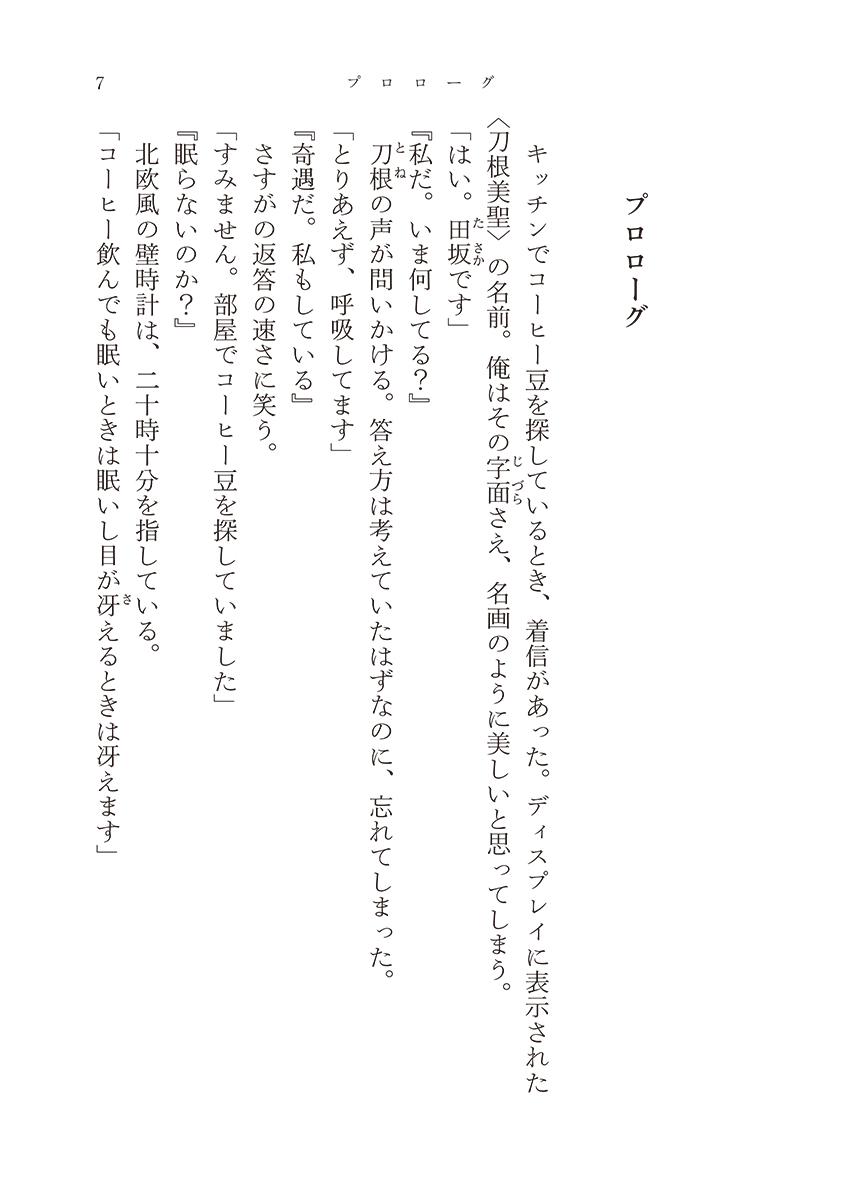 7
プロローグ
プロローグ
キッチンでコーヒー豆を探しているとき、着信があった。ディスプレイに表示された
〈刀根美聖〉の名前。俺はその字面さえ、名画のように美しいと思ってしまう。
「はい。田坂です」
『私だ。いま何してる？』
刀根の声が問いかける。答え方は考えていたはずなのに、忘れてしまった。
「とりあえず、呼吸してます」
『奇遇だ。私もしている』
さすがの返答の速さに笑う。
「すみません。部屋でコーヒー豆を探していました」
『眠らないのか？』
北欧風の壁時計は、二十時十分を指している。
「コーヒー飲んでも眠いときは眠いし目が冴えるときは冴えます」